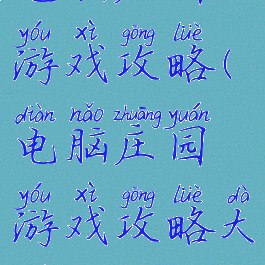 yóu xì gōng lüè
游戏攻略(
diàn nǎo zhuāng yuán
电脑庄园
yóu xì gōng lüè dà
游戏攻略大